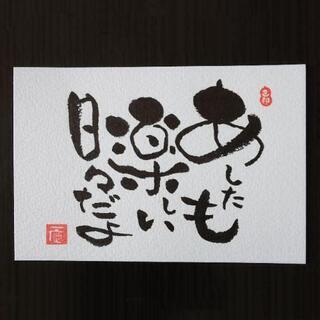 あしたも
楽しい
日々だよ